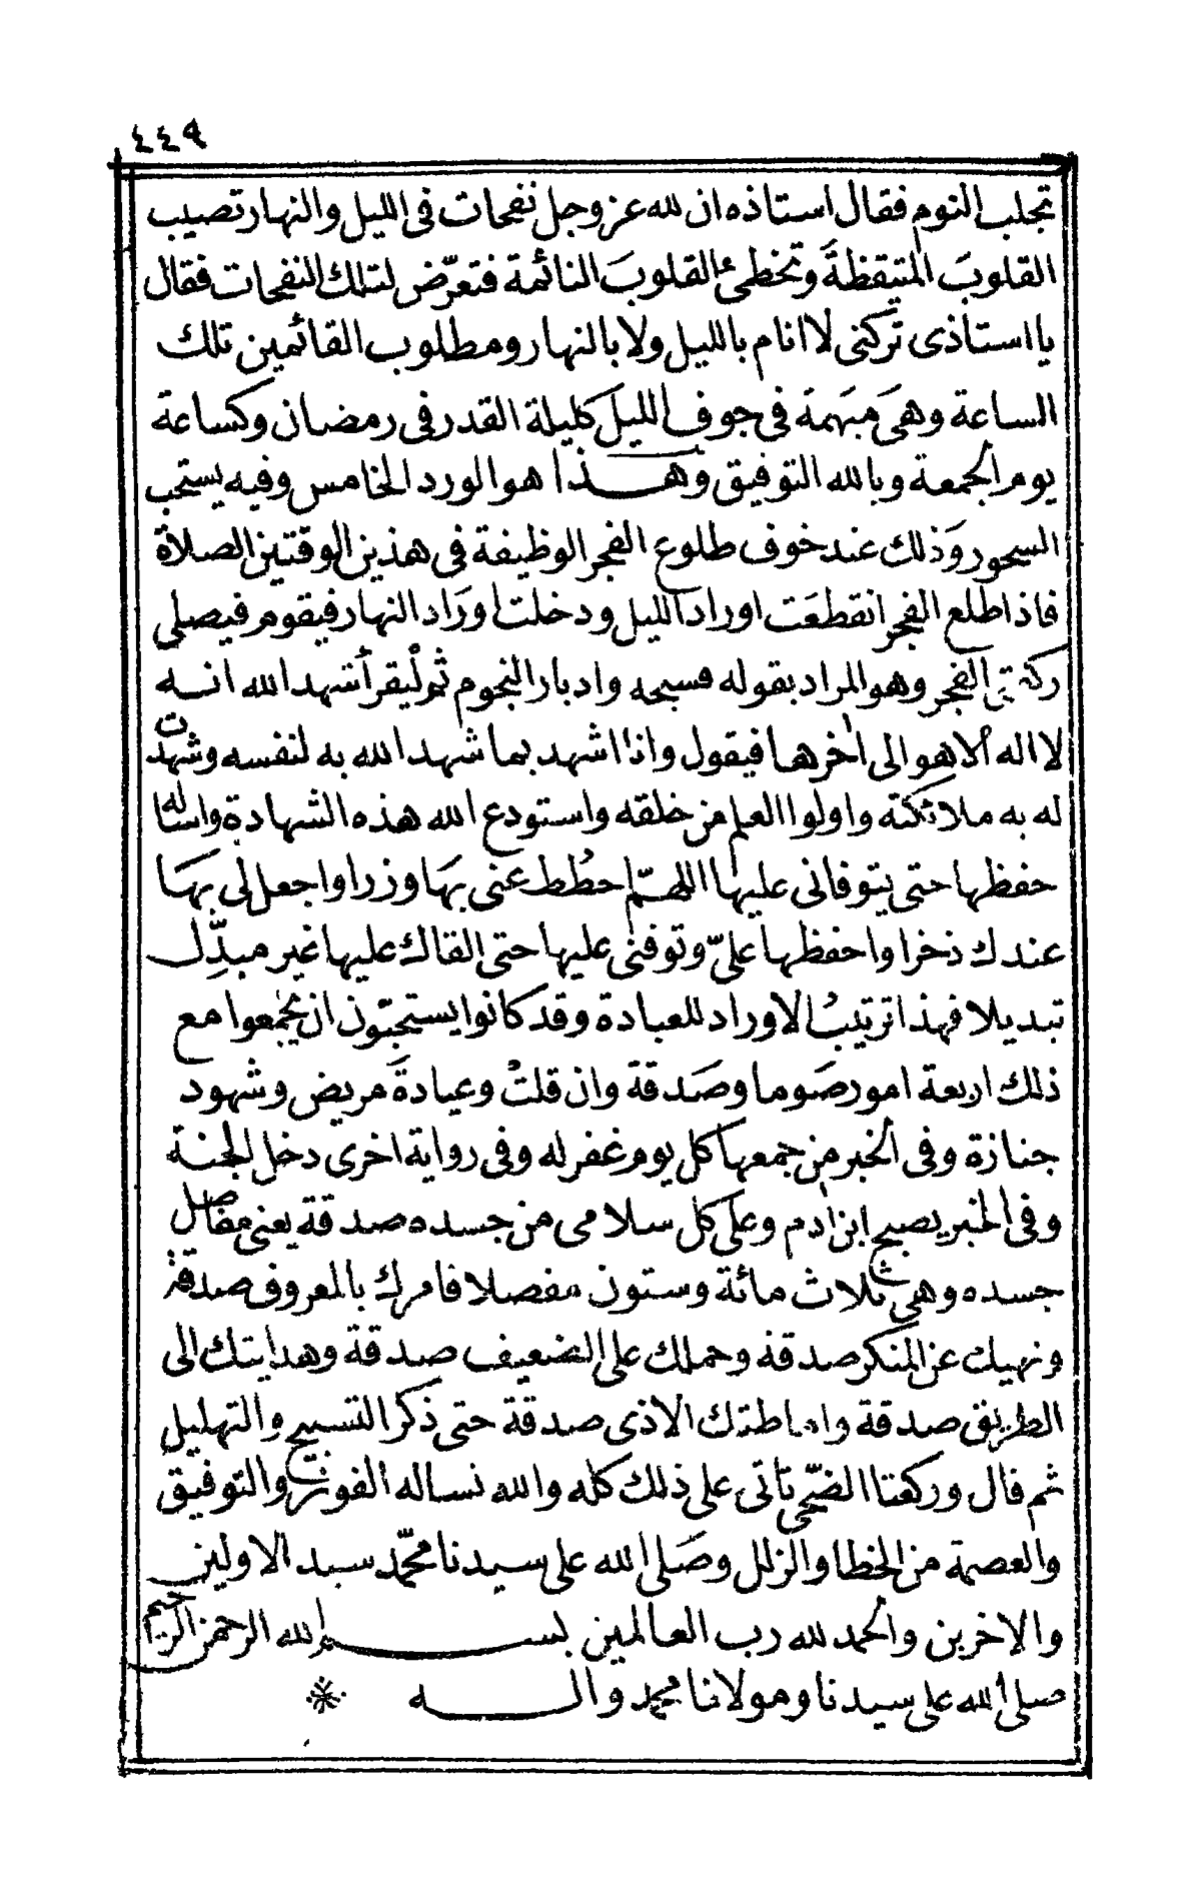 ٤٤٩
تجلب النوم فقال استاذه ان لله عز وجل نفحات فى الليل والنهار تصيب
القلوبَ المتيقظةَ وتخطئ القلوبَ النائمة فتعرّض لتلك النفحات فقال
يا استاذى تركتنى لا انام بالليل ولا بالنهار ومطلوب القائمين تلك
الساعة وهىَ مبَهمة فى جوف الليل كليلة القدر فى رمضان وكساعة
يوم الجمعة وبالله التوفيق وهـذا هو الورد الخامس وفيه يستحب
السحور وَذلك عند خوف طلوع الفجر الوظيفة فى هذين الوقتين الصلاة
فاذا طلع الفجر انقطعَت اوراد الليل ودخلت اورَاد النهار فيقوم فيصلى
ركعتى الفجر وهو المراد بقوله فسبحه وادبار النجوم ثم لْيقرأ شهد الله انه
لا اله الا هو الى اخرها فيقول وانا اشهد بما شهد الله به لنفسه وشهدت
له به ملائكته واولوا العلم من خلقه واستودع الله هذه الشهادة واساله
حفظها حتى يتوفانى عليها اللهمّ احطُط عنى بهَا وزرا واجعل لى بهَا
عندك ذخرا واحفظها علىّ وتوفنى عليها حتى القاك عليها غير مبدِّل
تبديلا فهذا ترتيبُ الاوراد للعبادة وقد كانوا يستحبّون ان يجمعوا مع
ذلك اربعة امور صَوما وصَدقة وان قلتْ وعيادةَ مريض وشهود
جنازة وفى الخبر من جمعها كل يوم غفر له وفى رواية اخرى دخل الجنة
وفى الخبر يصبح ابن ادم وعلى كل سلامى من جسده صدقة يعنى مفاصل
جسده وهى ثلاث مائة وستون مفصلا فامرك بالمعروف صدقة
ونهيك عن المنكر صدقة وحملك على الضعيف صدقة وهدايتك الى
الطريق صدقة واماطتك الاذى صدقة حتى ذكر التسبيح والتهليل
ثم قال وركعتا الضّحى تاتى على ذلك كله والله نساله الفوز والتوفيق
والعصمة من الخطا والزلل وصَلى الله على سيدنا محمّد سيد الاولين
والاخرين والحمد لله رب العالمين بسم الله الرحمن الرحيم
صلى الله على سيدنا ومولانا محمد واله